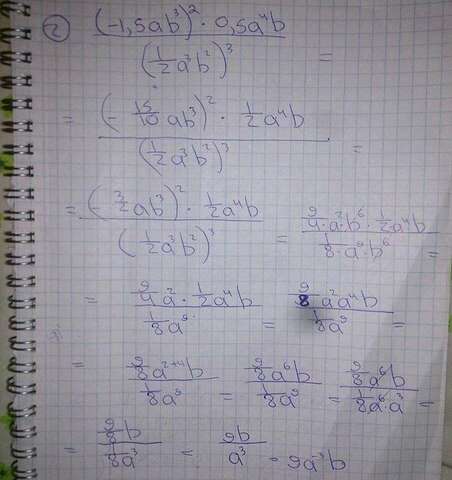 ② ((-1,5ab³)² · 0,5a⁴b) / (½a³b²)³ =
= ((-15/10 ab³)² · ½a⁴b) / (½a³b²)³ =
= ((-3/2 ab³)² · ½a⁴b) / (½a³b²)³ = (9/4 · a² · b⁶ · ½a⁴b) / (⅛ · a⁹ · b⁶) =
= (9/4 a² · ½a⁴b) / (⅛a⁹) = (9/8 a²a⁴b) / (⅛a⁹) =
= (9/8 a²⁺⁴b) / (⅛a⁹) = (9/8 a⁶b) / (⅛a⁹) = (9/8 a⁶b) / (⅛a⁶ · a³) =
= (9/8 b) / (⅛a³) = 9b / a³ = 9a⁻³b